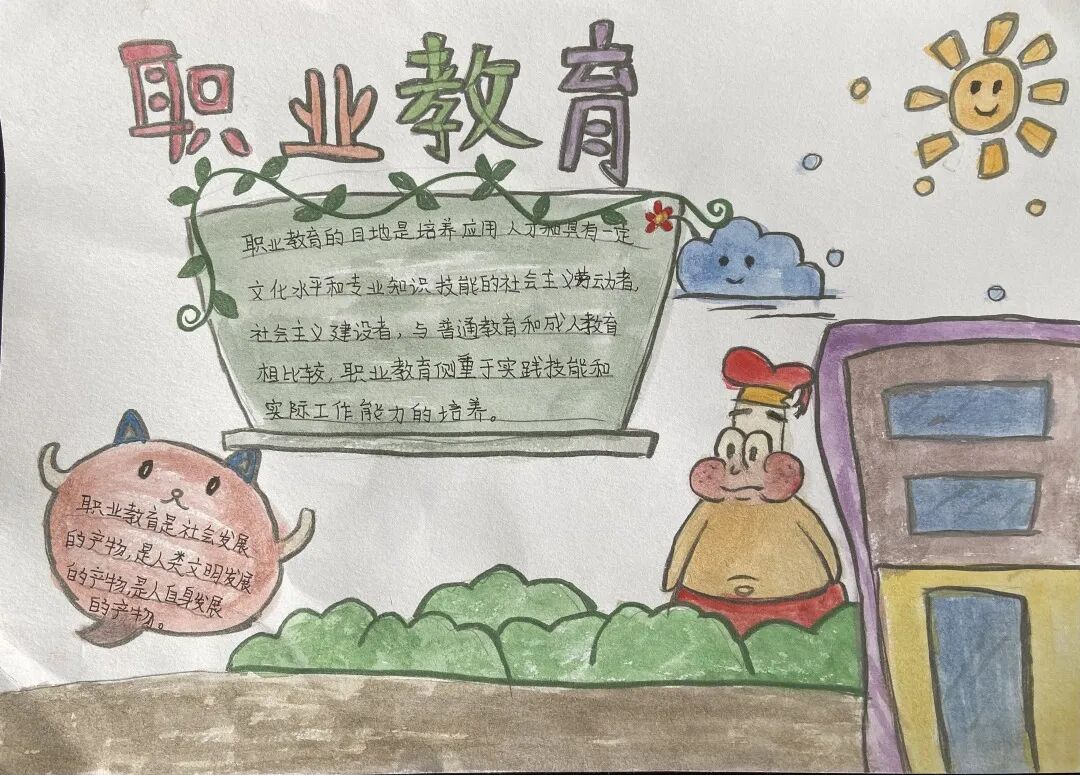 职业教育
职业教育的目地是培养应用人才和具有一定
文化水平和专业知识技能的社会主义劳动者,
社会主义建设者,与普通教育和成人教育
相比较,职业教育侧重于实践技能和
实际工作能力的培养。
职业教育是社会发展
的产物,是人类文明发展
的产物,是人自身发展
的产物。